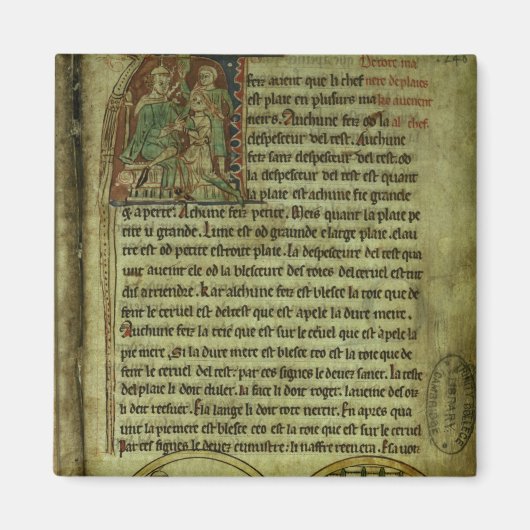 De tote ma
feiz avient que li chef nere de plaies
est plaie en plusurs ma ke avenent
neirs. Auchune feiz od la al chef.
despesceur del test. Auchune
feiz sanz despesceur del test. od
la despesceur del test est quant
la plaie est achune fie grande
aperte. Achune feiz petite. Meis quant la plaie pe
tite u grande. Lune est od graunde e large plaie. e lau
tre est od petite estroite plaie. La despesceure del test qua
unt avient ele od la blesceure des toies del cervel estuit
dis a rriendre. Kar alchune feiz est blesce la toie que de
fent le cervel del test que est apele la dure mere.
Auchune feiz la toie que est sur le cervel que est apele la
pie mere. Si la dure mere est blesce ceo est la toie que de
fent le cervel del test. par ces signes le devez saver. La teste
del plaie li doit duler. la face li doit roger. la veine des oilz
li doit Esa lange li doit neercir. En apres qua
unt la piemere est blesce ceo est la toie que est sur le cervel
Par ces signes le devez cunustre. li naffre reen cra. Esa voiz
LIBRARY
CAMBRIDGE